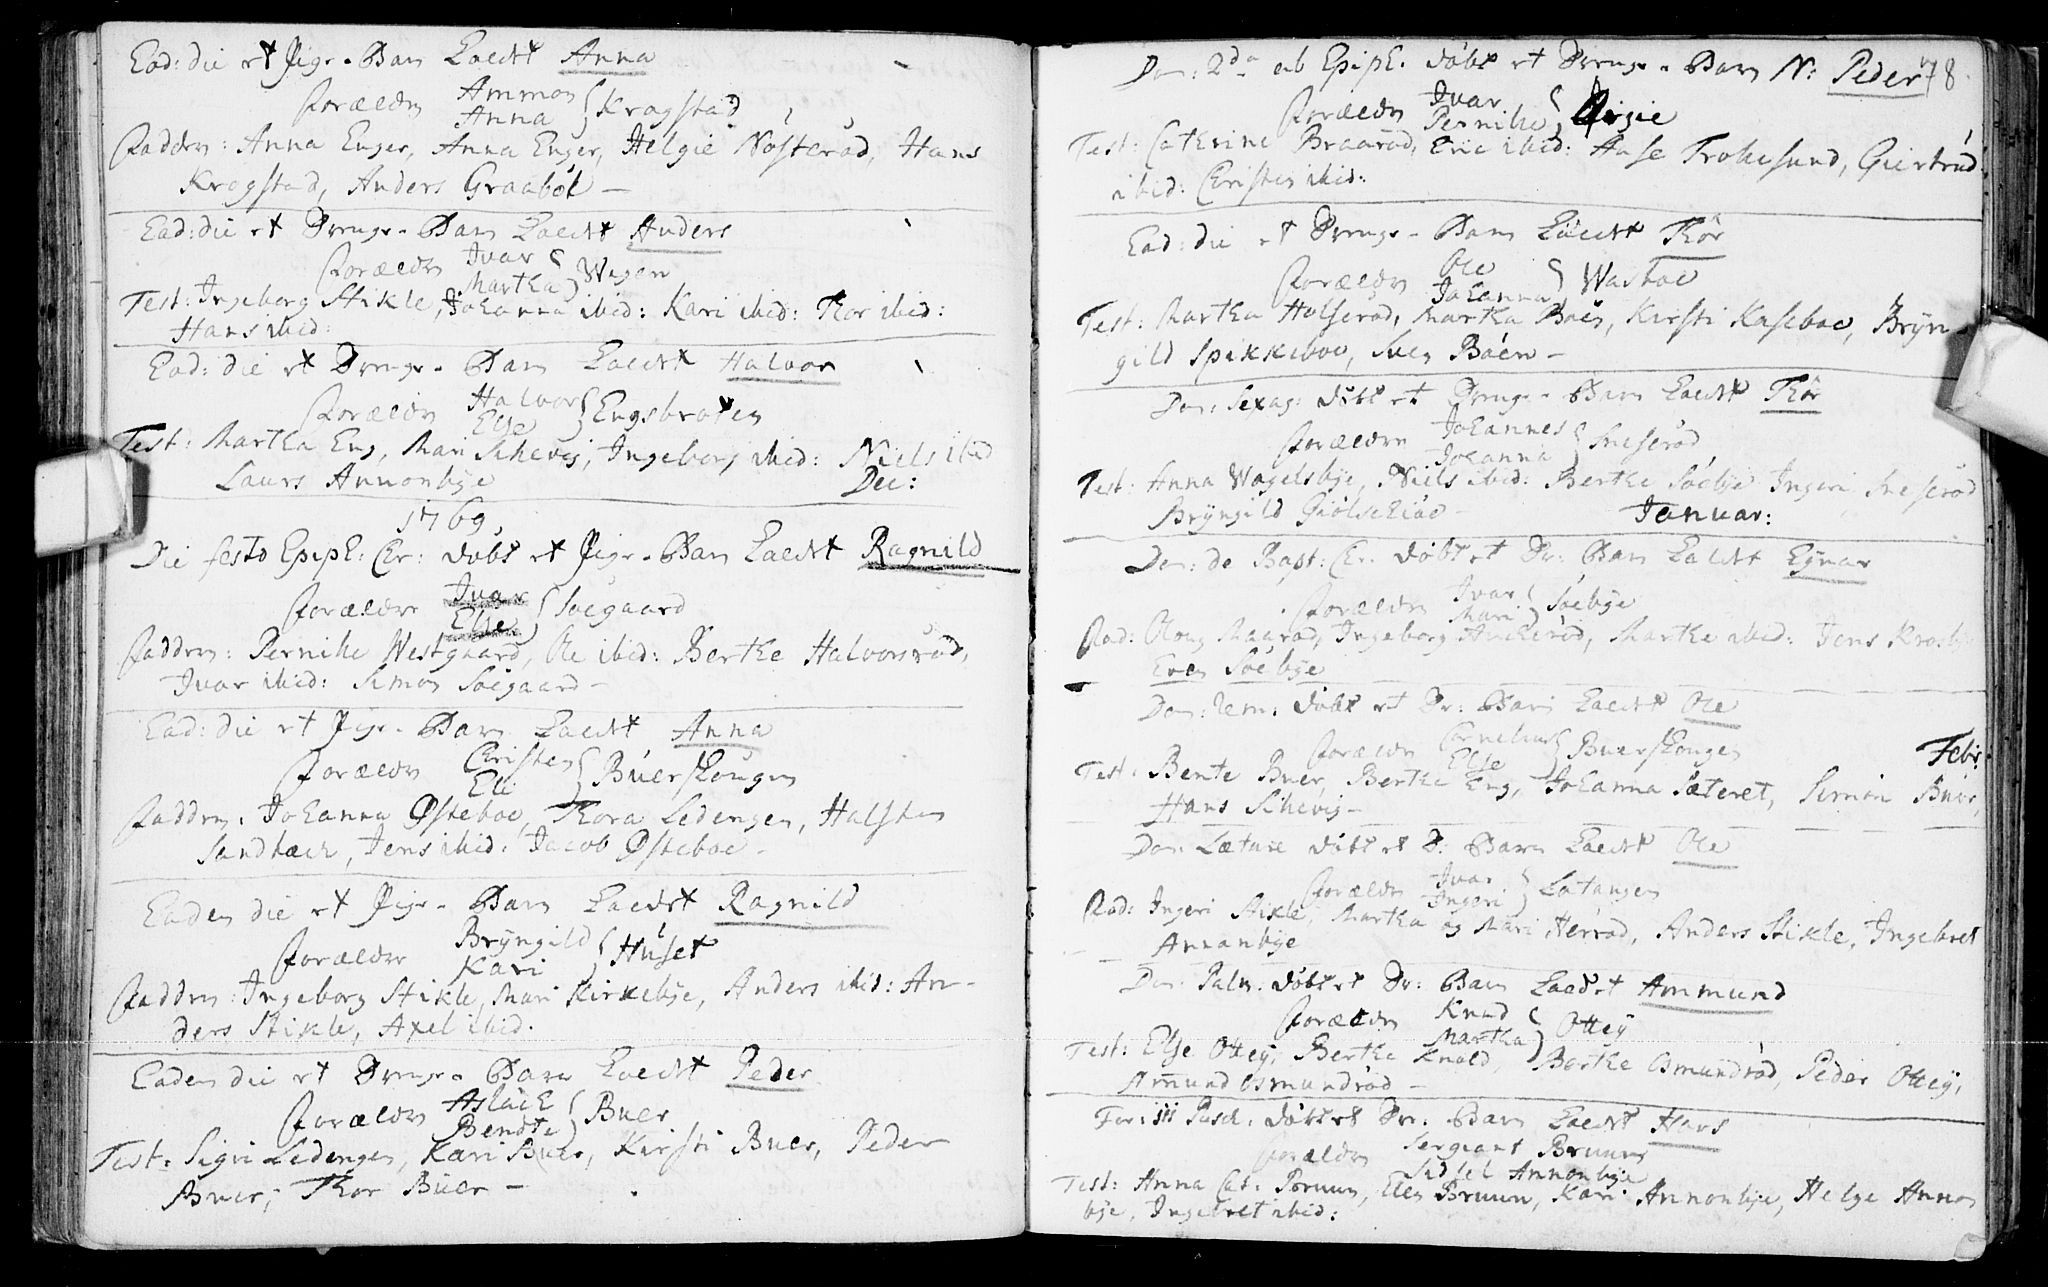 Ead: die et Pige-Barn kaldet Anna
Forældre Ammon Anna } Krogstad
Faddere: Anna Enger, Anna Enger, Helgie Nosterød, Hans
Krogstad, Anders Graaböl —
Ead: die et Drenge-Barn kaldet Anders
Forældre Ivar Martha } Wegen
Test: Ingeborg Stikle, Johanna ibid: Kari ibid: Thor ibid:
Hans ibid:
Ead: die et Drenge-Barn kaldet Halvor
Forældre Halvor Else } Engsbroten
Test: Martha Eng, Mari Schevig, Ingeborg ibid: Niels ibid
Laurs Annonbye Dec:
1769,
Die festo Epiph: Chr: döbt et Pige-Barn kaldet Ragnild
Forældre Ivar Else } Soegaard
Faddere: Pernille Westgaard, Ole ibid: Berthe Halvorsrød,
Ivar ibid: Simon Soegaard —
Ead: die et Pige-Barn kaldet Anna
Forældre Christen Eli } Buerskougen
Faddere: Johanna Østeboe, Thora Ledengen, Halsten
Sandbæch, Jens ibid: Jacob Østeboe —
Eaden die et Pige-Barn kaldet Ragnild
Forældre Bryngild Kari } Huset
Faddere: Ingeborg Stikle, Mari Kirkebye, Anders ibid: An-
ders Stikle, Axel ibid:
Eaden die et Drenge-Barn kaldet Peder
Forældre Aslach Bendte } Buer
Test: Sigri Ledengen, Kari Buer, Kirsti Buer, Peder
Buer, Thor Buer —
Dom: 2da ab Epiph. döbt et Drenge-Barn N: Peder 78.
Forældre Ivar Pernille }
Test: Cathrine Braarød, Eric ibid: Aase Trohesund, Giertrud
ibid: Christen ibid:
Ead: die et Drenge-Barn kaldet Thor
Forældre Ole Johanna } Wasboe
Test: Martha Holserød, Martha Boen, Kirsti Kaseboe, Bryn-
gild Spikkeboe, Sven Boen —
Dom: Sexag: döbt et Drenge-Barn kaldet Thor
Forældre Johannes Johanna } Sneserød
Test: Anna Wagelsbye, Niels ibid: Berthe Soebye Ingeri Sneserød
Bryngild Januar:
Dom: de Bapt: Chr: döbt et Dr: Barn kaldet Eynar
Forældre Ivar Mari } Soebye
Fad: Maarød, Ingeborg Hucherød, Marthe ibid: Jens
Even Soebye
Dom: Rem: döbt et Dr: Barn kaldet Ole
Forældre Cornelius Else } Buerskougen Febr:
Test: Bente Buer, Berthe Eng, Johanna Sæteret, Simon Buer,
Hans Schevig —
Dom: Lætare döbt et D: Barn kaldet Ole
Forældre Ivar Ingeri } Latangen
Fad: Ingeri Stikle, Martha og Mari Herrød, Anders Stikle, Ingebret
Annanbye
Dom: Palm: döbt et Dr: Barn kaldet Ammund
Forældre Knud Martha } Ottey
Test: Else Ottey, Berthe Knold, Berthe Osmundrød, Peder Ottey,
Ammund Osmundrød —
Fer: iii Pasch: döbt et Dr: Barn kaldet Hans
Forældre Sergiant Bruun Sidsel Annonbye
Test: Anna Cat: Bruun, Elen Bruun, Kari Annonbye, Helge Annon
bye, Ingebret ibid: